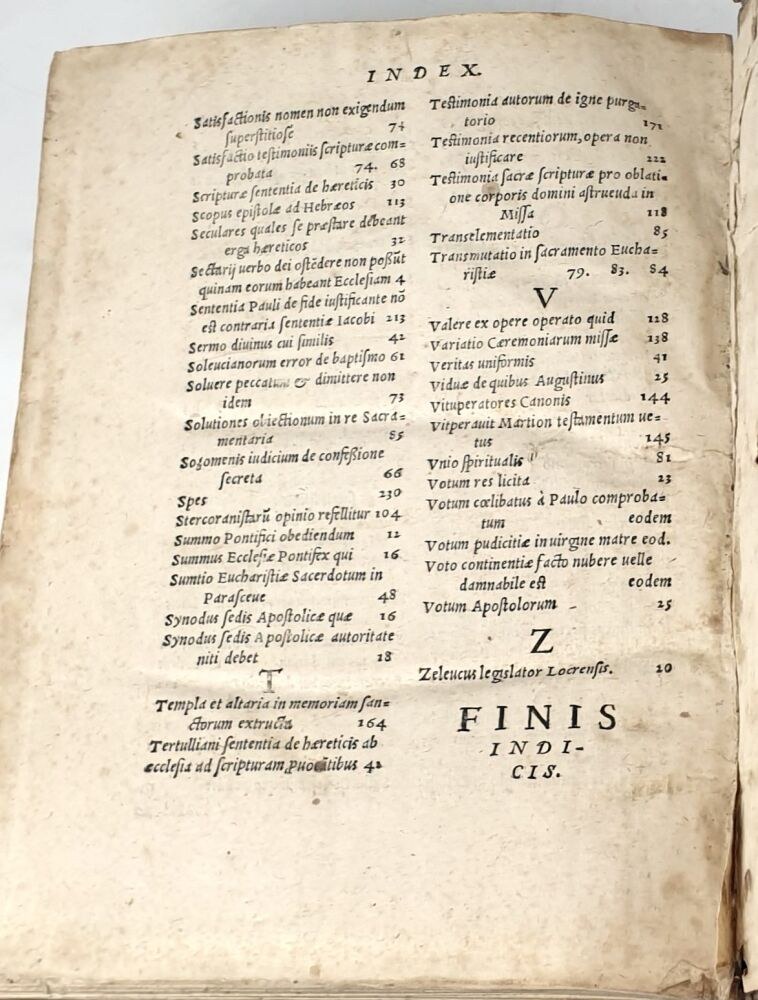 INDEX.
Satisfactionis nomen non exigendum
superstitiose 74
Satisfactio testimoniis scripturæ com=
probata 74. 68
Scripturæ sententia de hæreticis 30
Scopus epistolæ ad Hebræos 113
Seculares quales se præstare debeant
erga hæreticos 32
Sectarij uerbo dei ostēdere non possūt
quinam eorum habeant Ecclesiam 4
Sententia Pauli de fide iustificante nō
est contraria sententiæ Iacobi 213
Sermo diuinus cui similis 42
Soleucianorum error de baptismo 61
Soluere peccatum & dimittere non
idem 73
Solutiones obiectionum in re Sacra=
mentaria 85
Sozomenis iudicium de confessione
secreta 66
Spes 230
Stercoranistarū opinio refellitur 104
Summo Pontifici obediendum 12
Summus Ecclesiæ Pontifex qui 16
Sumtio Eucharistiæ Sacerdotum in
Parasceue 48
Synodus sedis Apostolicæ quæ 16
Synodus sedis Apostolicæ autoritate
niti debet 18
T
Templa et altaria in memoriam san=
ctorum extructa 164
Tertulliani sententia de hæreticis ab
æcclesia ad scripturam 42
Testimonia autorum de igne purga=
torio 171
Testimonia recentiorum, opera non
iustificare 222
Testimonia sacræ scripturæ pro oblati=
one corporis domini astrueuda in
Missa 118
Transelementatio 85
Transmutatio in sacramento Eucha=
ristiæ 79. 83. 84
V
Valere ex opere operato quid 128
Variatio Cæremoniarum missæ 138
Veritas uniformis 41
Viduæ de quibus Augustinus 25
Vituperatores Canonis 144
Vitperauit Martion testamentum ue=
tus 145
Vnio spiritualis 81
Votum res licita 23
Votum cœlibatus à Paulo comproba=
tum eodem
Votum pudicitiæ in uirgine matre eod.
Voto continentiæ facto nubere uelle
damnabile est eodem
Votum Apostolorum 25
Z
Zeleucus legislator Locrensis. 20
FINIS
INDI-
CIS.